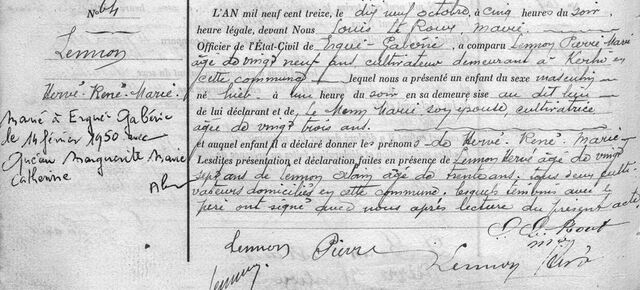 No 64
Lennon
Hervé-René-Marie.
Marié à Ergué Gabéric
le 14 février 1950 avec
Marguerite Marie
Catherine
L'AN mil neuf cent treize, le dix neuf octobre, à cinq heures du soir
heure légale, devant Nous Louis Le Roux, maire
Officier de l'État-Civil de Ergué-Gabéric, a comparu Lennon Pierre Marie
âgé de vingt neuf ans cultivateur demeurant à
cette commune lequel nous a présenté un enfant du sexe masculin
né hier à une heure du soir en sa demeure sise au dit lieu
de lui déclarant et de Le Menn Marie son épouse, cultivatrice
âgée de vingt trois ans.
et auquel enfant il a déclaré donner les prénoms de Hervé-René-Marie
Lesdites présentation et déclaration faites en présence de Lennon âgé de vingt
sept ans et Lennon âgé de trente ans, tous deux culti-
vateurs domiciliés en cette commune. Lesquels témoins avec le
père ont signé avec nous après lecture du présent acte
Lennon Pierre
Lennon